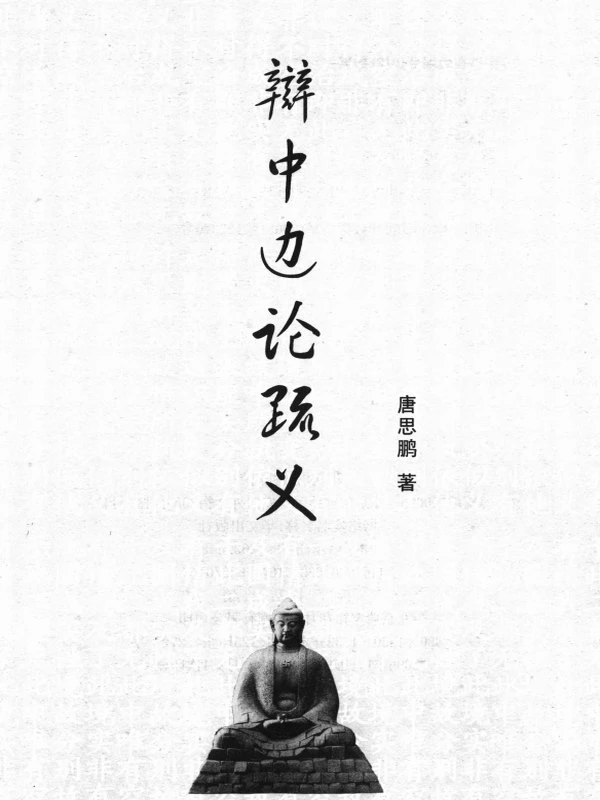 辩中边论疏义
唐思鹏 著